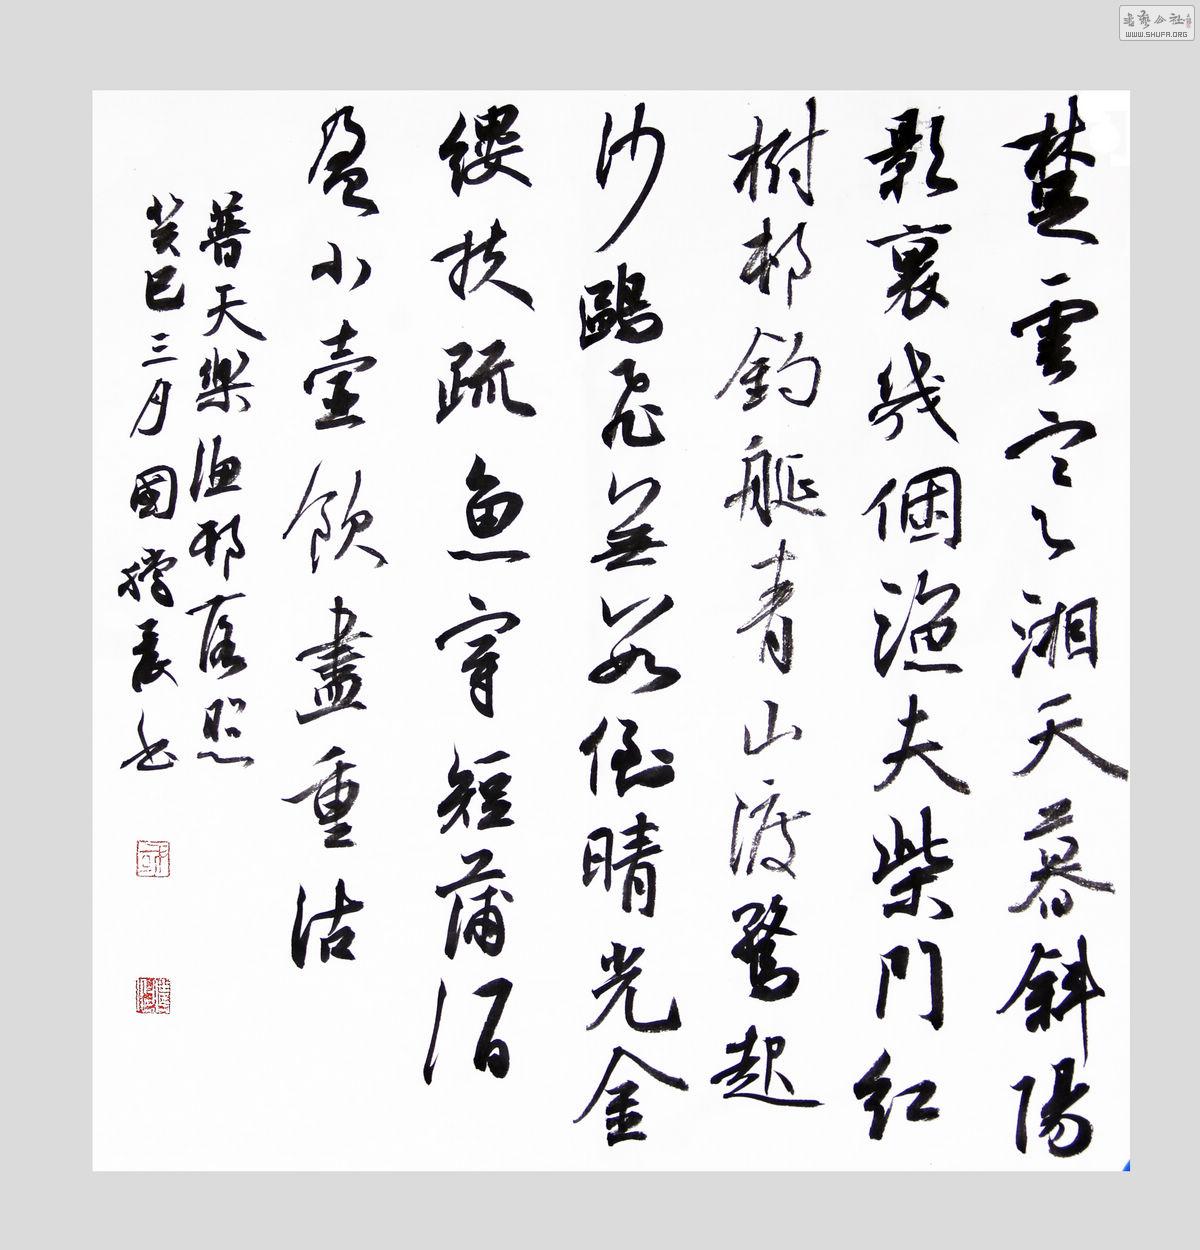 楚雲寒湘天暮斜陽
影裏幾個漁夫柴門紅
樹邨釣艇青山渡驚起
沙鷗飛無數倒晴光金
縷扶疏魚穿短蒲酒
盈小壺飲盡重沽
普天樂漁邨落照
癸巳三月國書
書藝公社
WWW.SHUFA.ORG